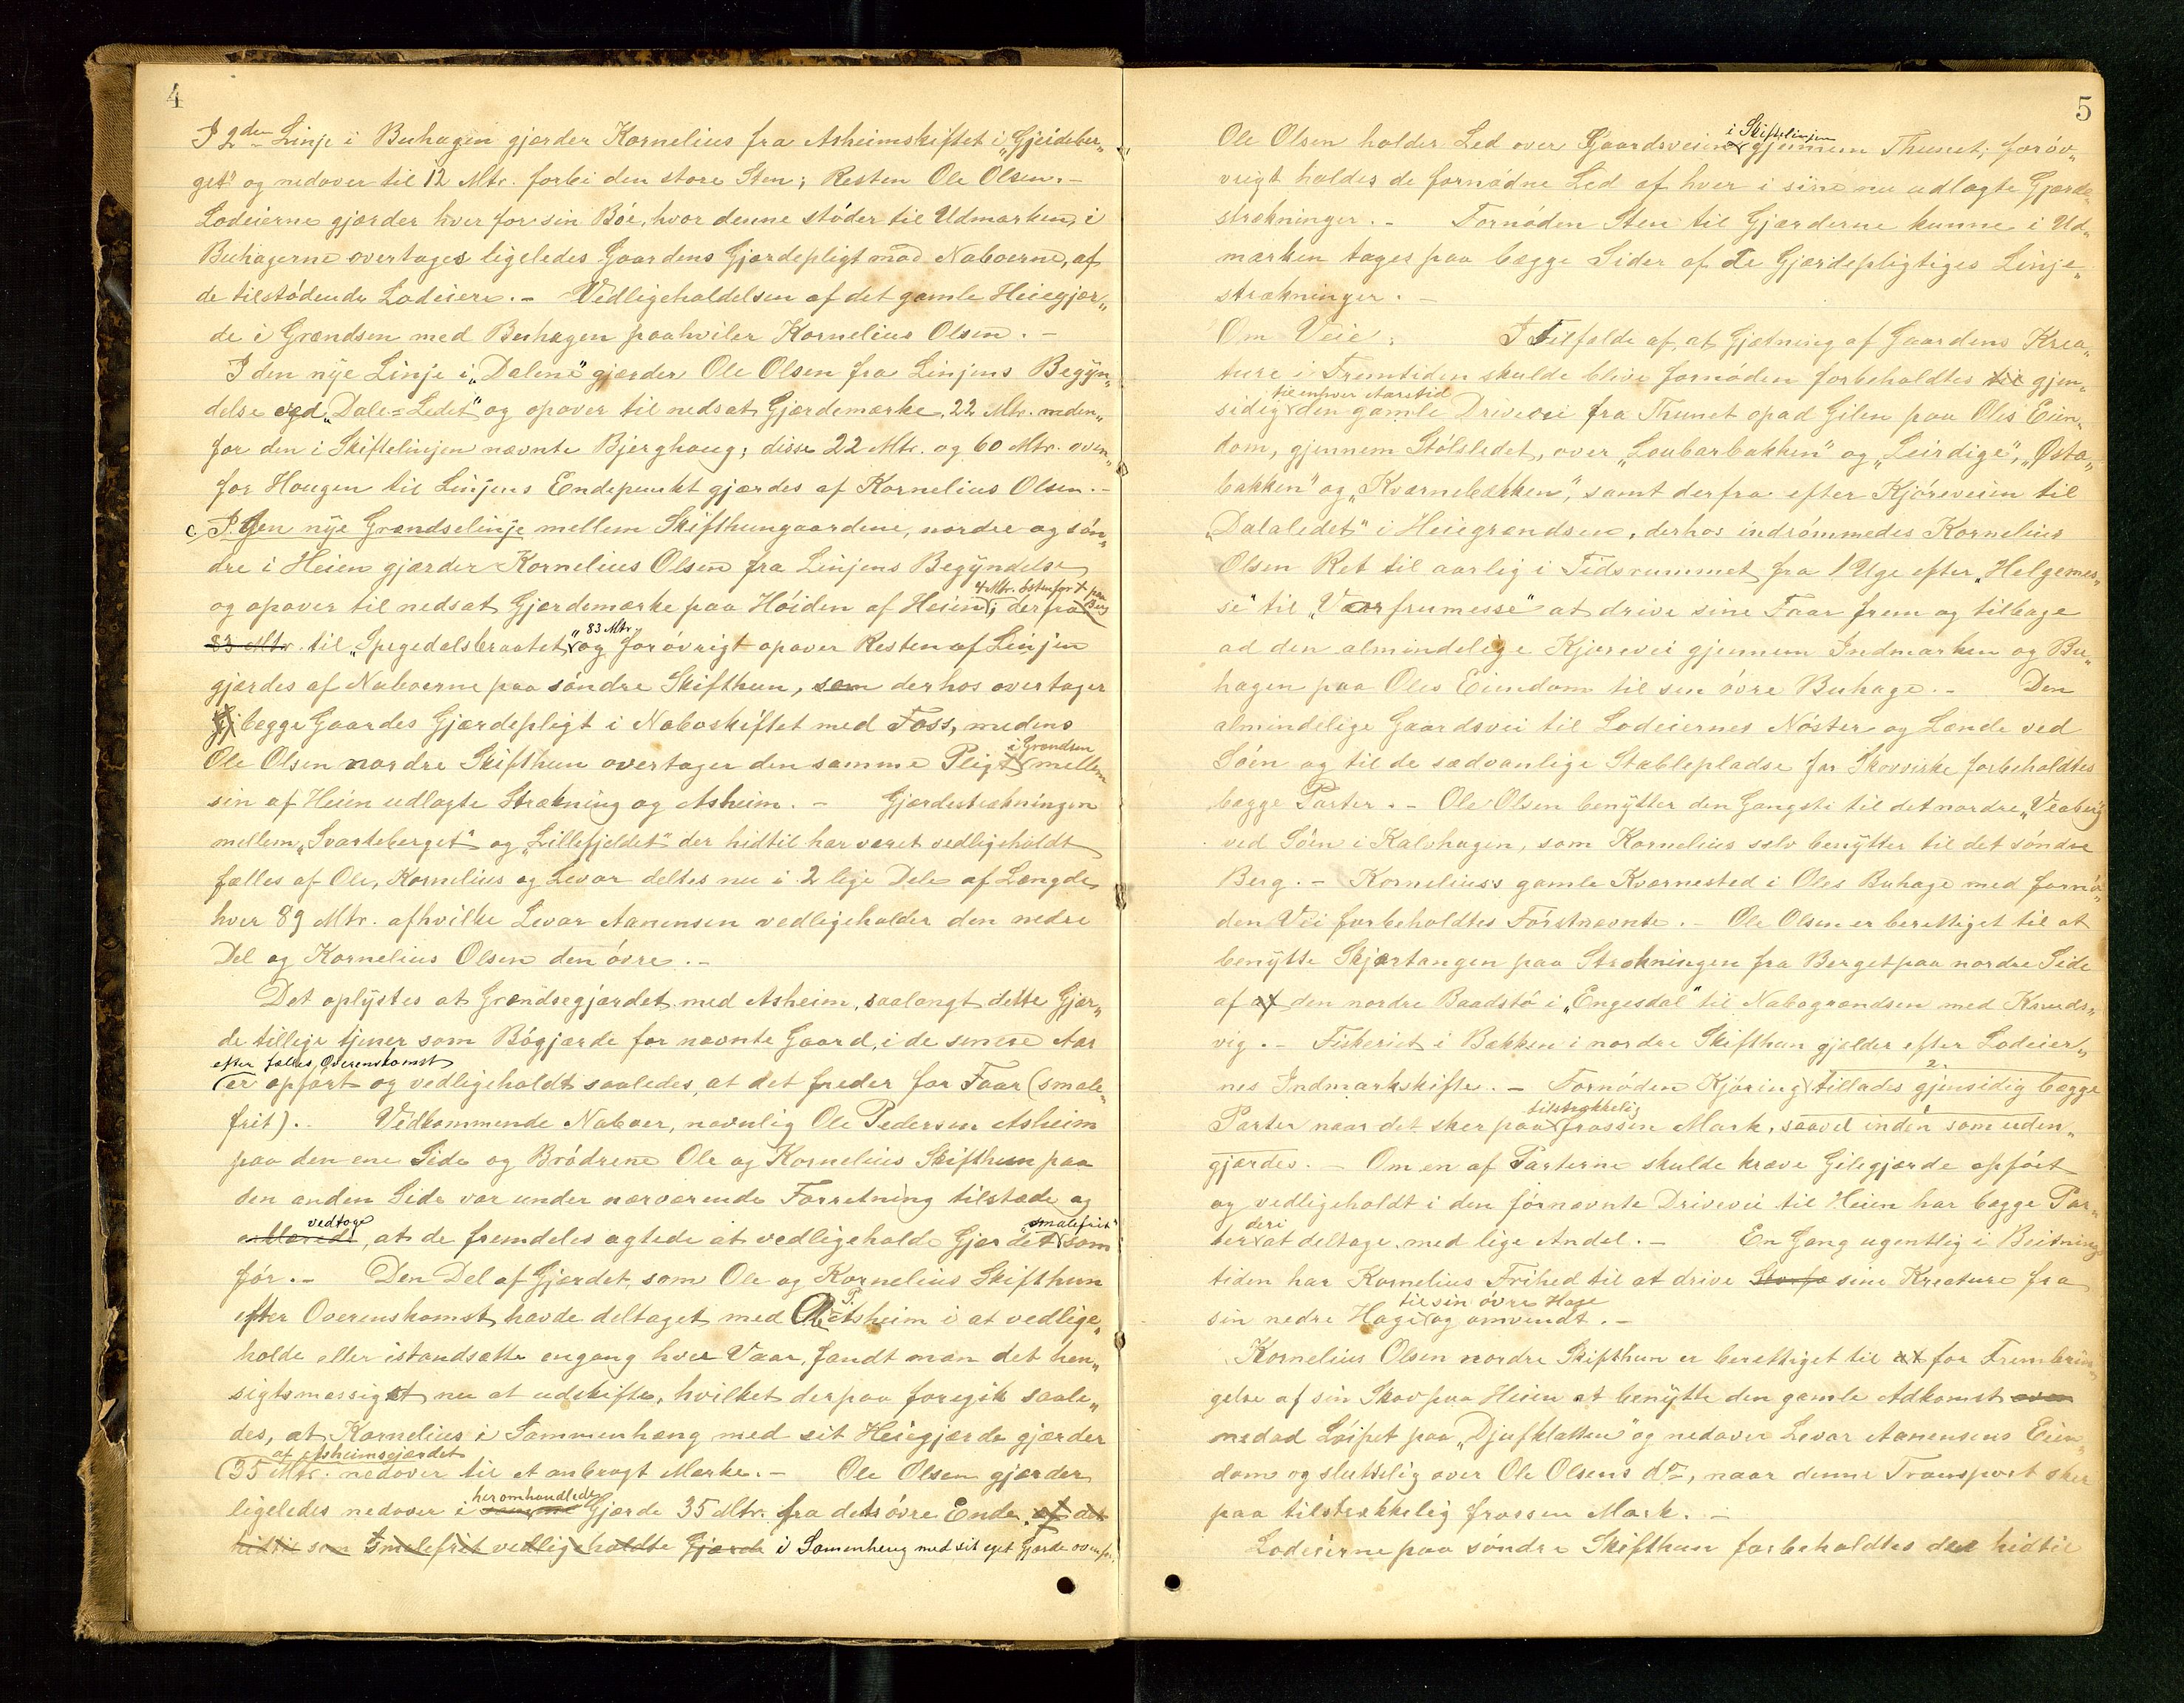 4
I 2den Linje i Buhagen gjærder Kornelius fra Asheimskiftet i „Gjeideber„
get" og nedover til 12 Mtr. forbi den store Sten; Resten Ole Olsen.-
Lodeierne gjærder hver for sin Bøe, hvor denne støder til Udmarken, i
Buhagerne overtages ligeledes Gaardens Gjærdepligt mod Naboerne, af
de tilstødende Lodeiere.- Vedligeholdelsen af det gamle Heiegjær„
de i Grændsen med Buhagen paahviler Kornelius Olsen.-
I den nye Linje i „Dalene" gjærder Ole Olsen fra Linjens Begyn„
delse ved „Dale=Ledet" og opover til nedsat Gjærdemærke, 22 Mtr. neden„
for den i Skiftelinjen nævnte Bjerghaug; disse 22 Mtr. og 60 Mtr. oven„
for Hougen til Linjens Endepunkt gjærdes af Kornelius Olsen.-
c. I den nye Grændselinje mellem Skifthungaardene, nordre og søn„
dre i Heien gjærder Kornelius Olsen fra Linjens Begyndelse
4 Mtr. østenfor + paa Berg
og opover til nedsat Gjærdemærke paa Høiden af Heien; derfra
83 Mtr.
83 Mtr. til „Spegedalsbraatet" og forøvrigt opover Resten af Linjen
gjærdes af Naboerne paa søndre Skifthun, som derhos overtager
begge Gaardes Gjærdepligt i Naboskiftet med Foss, medens
i Grændsen
Ole Olsen nordre Skifthun overtager den samme Pligt mellem
sin af Heien udlagte Strækning og Asheim.- Gjærdestrækningen
mellem „Svarteberget" og „Lillefjeldet" der hidtil har været vedligeholdt
fælles af Ole, Kornelius og Levor deltes nu i 2 lige Dele af Længde
hver 89 Mtr. afhvilke Levor Aanensen vedligeholder den nedre
Del og Kornelius Olsen den øvre.-
Det oplystes at Grændsegjærdet med Asheim, saalangt dette Gjær„
de tillige tjener som Bøgjærde for nævnte Gaard, i de senere Aar
efter fælles Overenskomst
er opført og vedligeholdt saaledes, at det freder for Faar (smale„
frit).- Vedkommende Naboer, navnlig Ole Pedersen Asheim
paa den ene Side og Brødrene Ole og Kornelius Skifthun paa
den anden Side var under nærværende Forretning tilstæde og
vedtoge „smalefrit"
erklærede, at de fremdeles agtede at vedligeholde Gjærdet som
før.- Den Del af Gjærdet, som Ole og Kornelius Skifthun
P.
efter Overenskomst havde deltaget med Ole Asheim i at vedlige„
holde eller istandsætte engang hver Vaar, fandt man det hen„
sigtsmæssigst nu at udskifte, hvilket derpaa foregik saale„
des, at Kornelius i Sammenhæng med sit Heiegjærde gjærder
af Asheimsgjærdet
35 Mtr. nedover til et anbragt Mærke.- Ole Olsen gjærder
heromhandlede
ligeledes nedover i samme Gjærde 35 Mtr. fra dets øvre Ende af det
hidtil som smalefrit vedligeholdte Gjærde i Samenheng med sit eget Gjærde ovenfor.
5
i Skiftelinjen
Ole Olsen holder Led over Gaardsveien gjennem Thunet; forøv„
vrigt holdes de fornødne Led af hver i sine nu udlagte Gjærde„
strækninger.- Fornøden Sten til Gjærderne kunne i Ud„
marken tages paa begge Sider af de Gjærdepligtiges Linje„
strækninger.-
Om Veie: I Tilfælde af, at Gjætning af Gaardens Krea„
ture i Fremtiden skulde blive fornøden forbeholdtes til gjen„
til enhver Aarstid
sidig den gamle Drivevei fra Thunet opad Gilen paa Oles Eien„
dom, gjennem Stølsledet, over „Loubarbakken" og „Leirdige", „Østa„
bakken" og „Kværnebækken", samt derfra efter Kjøreveien til
„Dalaledet" i Heiegrændsen, derhos indrømmedes Kornelius
Olsen Ret til aarlig i Tidsrummet fra 1 Uge efter „Helgemes„
se" til „Vaarfrumesse" at drive sine Faar frem og tilbage
ad den almindelige Kjørevei gjennem Indmarken og Bu„
hagen paa Oles Eiendom til sin øvre Buhage.- Den
almindelige Gaardsvei til Lodeiernes Nøster og Lænde ved
Søen og til de sædvanlige Stablepladse for Skovvirke forbeholdtes
begge Parter.- Ole Olsen benytter den Gangsti til det nordre „Veaberg
ved Søen i Kalvhagen, som Kornelius selv benytter til det søndre
Berg.- Kornelius's gamle Kværnested i Oles Buhage med fornø„
den Vei forbeholdtes Førstnævnte.- Ole Olsen er berettiget til at
benytte Skjærtangen paa Strækningen fra Berget paa nordre Side
af af den nordre Baadstø i „Engesdal" til Nabogrændsen med Knuds„
vig.- Fiskeriet i Bækken i nordre Skifthun gjælder efter Lodeier„
2.
nes Indmarkskifte.- Fornøden Kjøring tillades gjensidig begge
tilstrækkelig
Parter naar det sker paa frossen Mark, saavel inden som uden„
gjærdes.- Om en af Parterne skulde kræve Gilegjærde opført
og vedligeholdt i den førnævnte Drivevei til Heien har begge Par„
deri
ter at deltage med lige Andel.- En Gang ugentlig i Beitnings
tiden har Kornelius Frihed til at drive Storfæ sine Kreature fra
til sin øvre Hage
sin nedre Hage og omvendt.-
Kornelius Olsen nordre Skifthun er berettiget til at for Frembrin„
gelse af sin Skov paa Heien at benytte den gamle Adkomst over
nedad Løipet paa „Djufklatten" og nedover Levor Aanensens Eien„
dom og sluttelig over Ole Olsens do, naar denne Transport sker
paa tilstrækkelig frossen Mark.-
Lodeierne paa søndre Skifthun forbeholdtes den hidtil